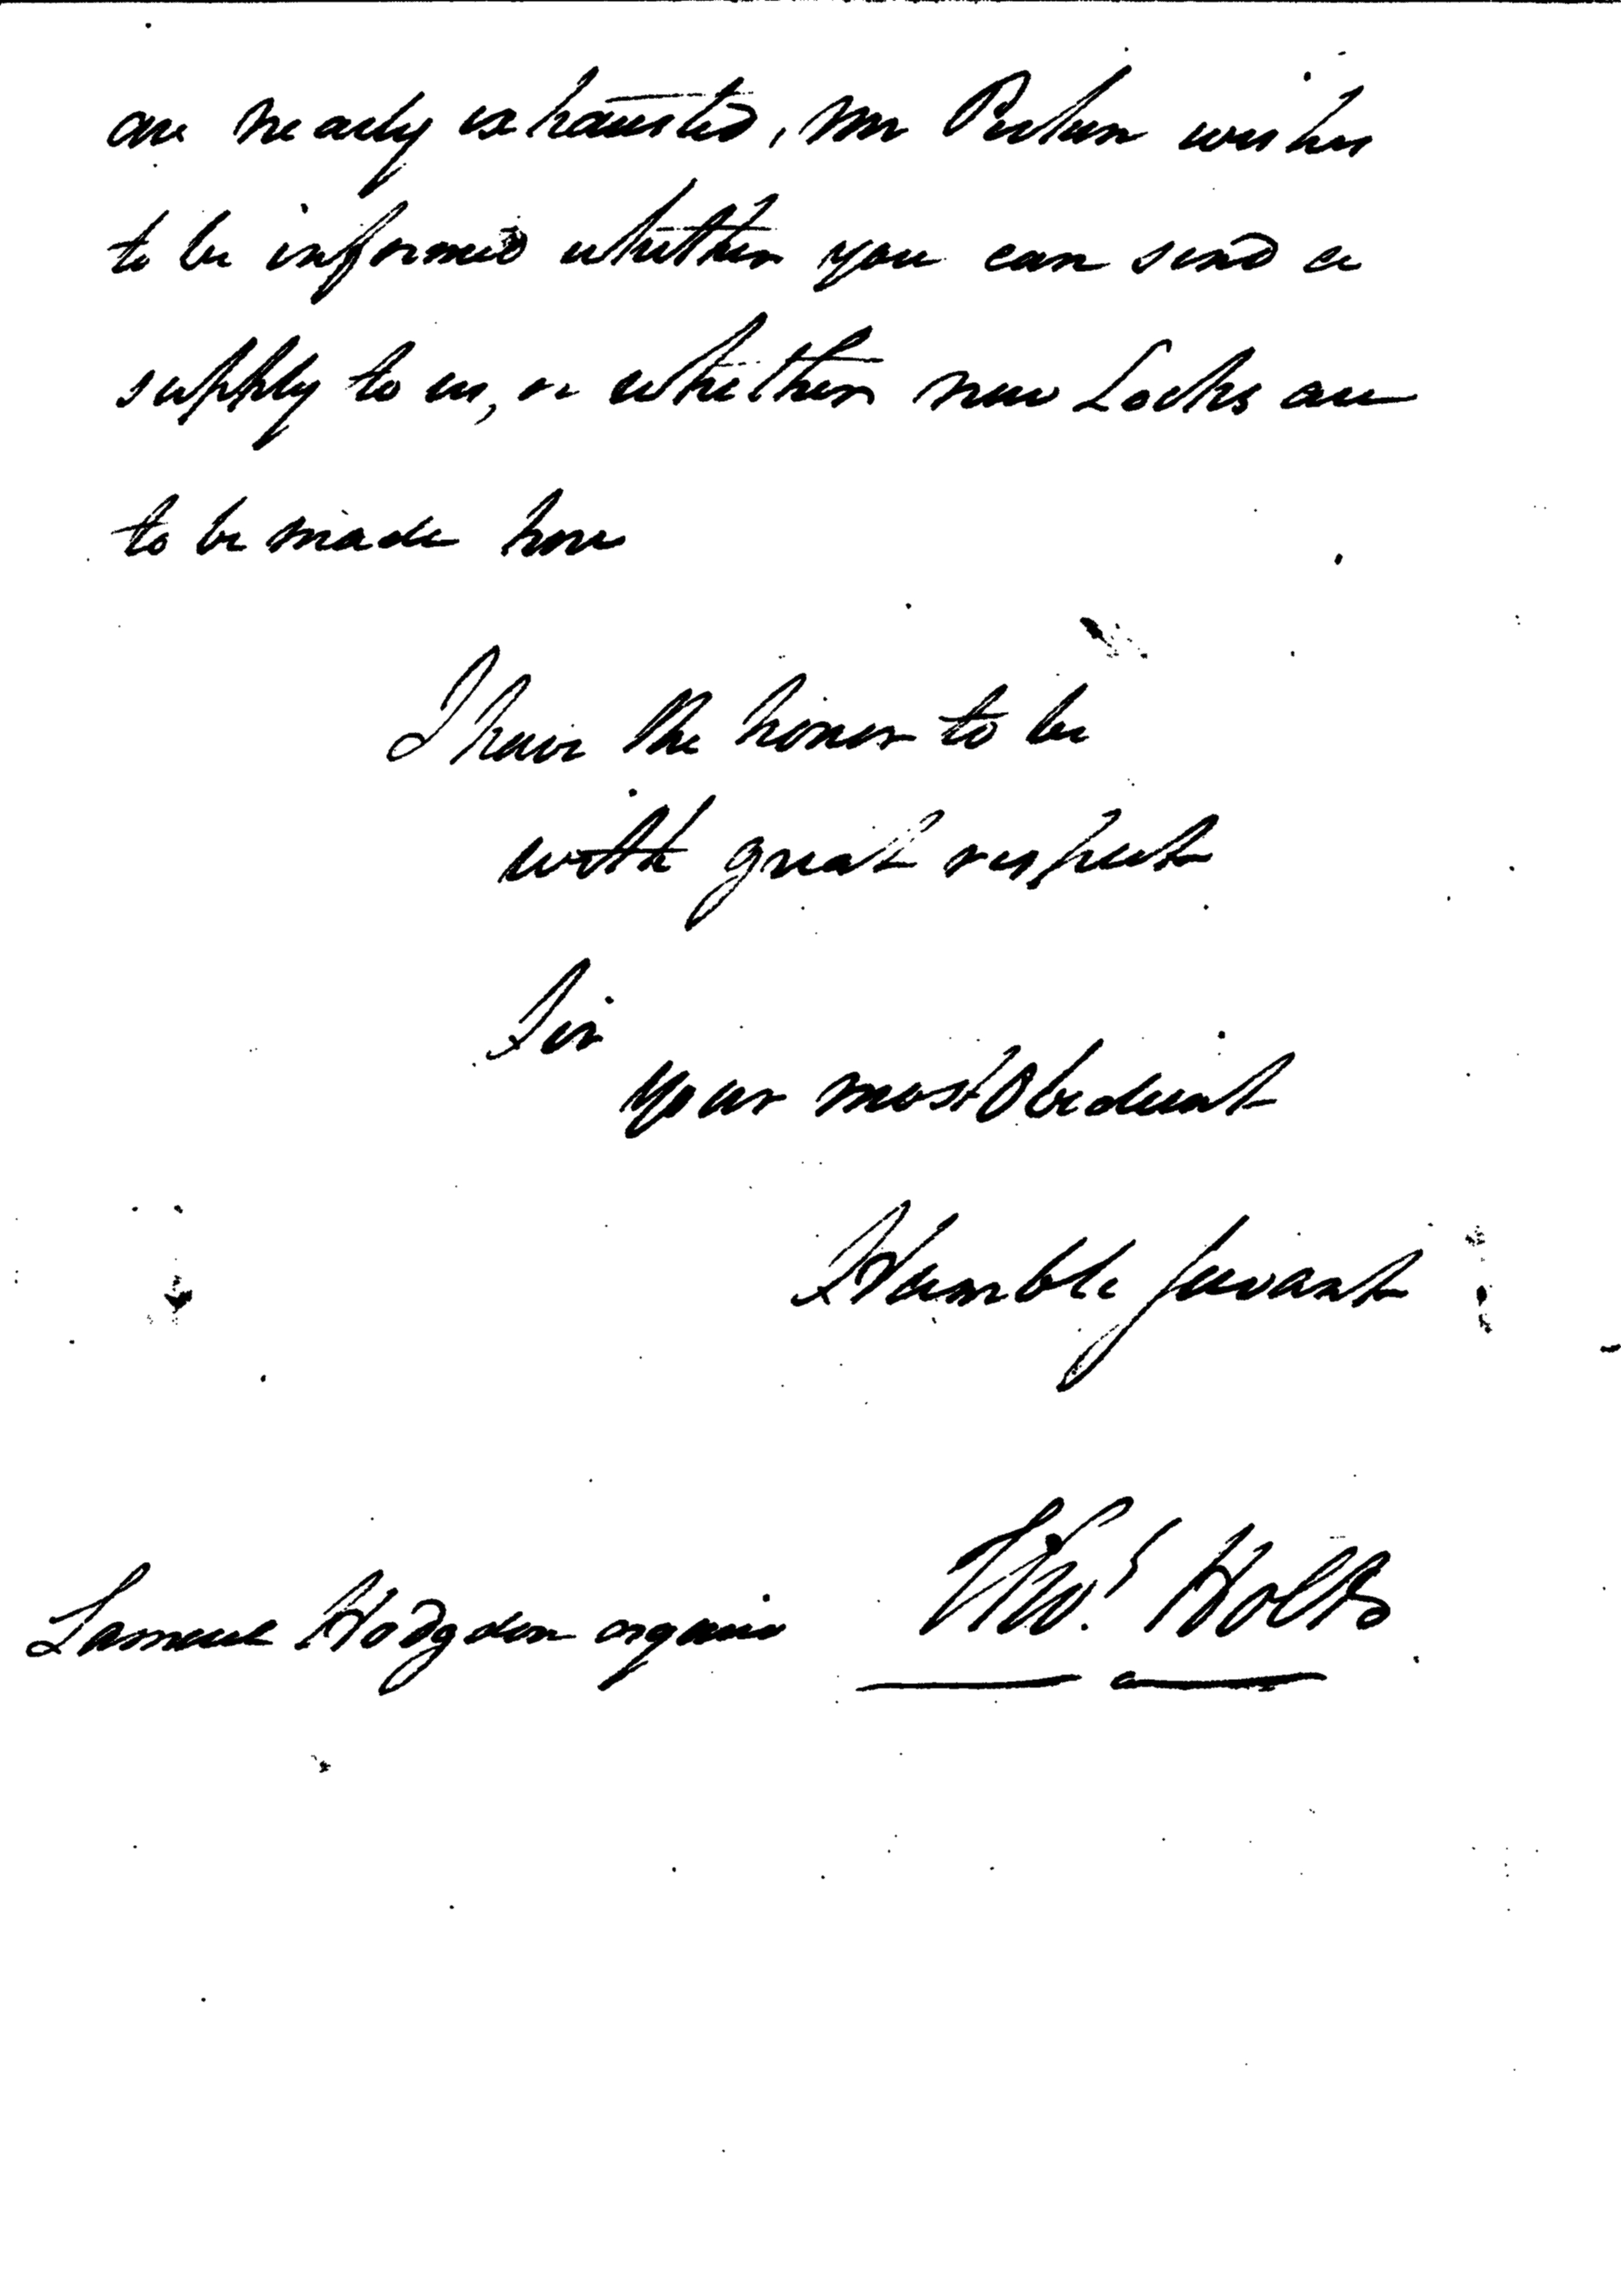 are nearly exhausted, Mr Perkin wishes
to be informed whether you can send a
supply to us, or whether new Locks are
to be made here
I have the honor to be
with great respect
Sir
your most Obedient
Humble Servant
Samuel Hodgdon esquire Thos. Holt